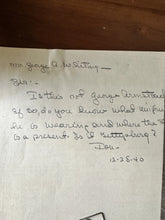 Mr. George A. Whiting —
Sir: -
Is this not George Armstrong
If so, do you know what uniform
he is wearing and where the
is a present. Is it Gettysburg?
Don -
12-28-60